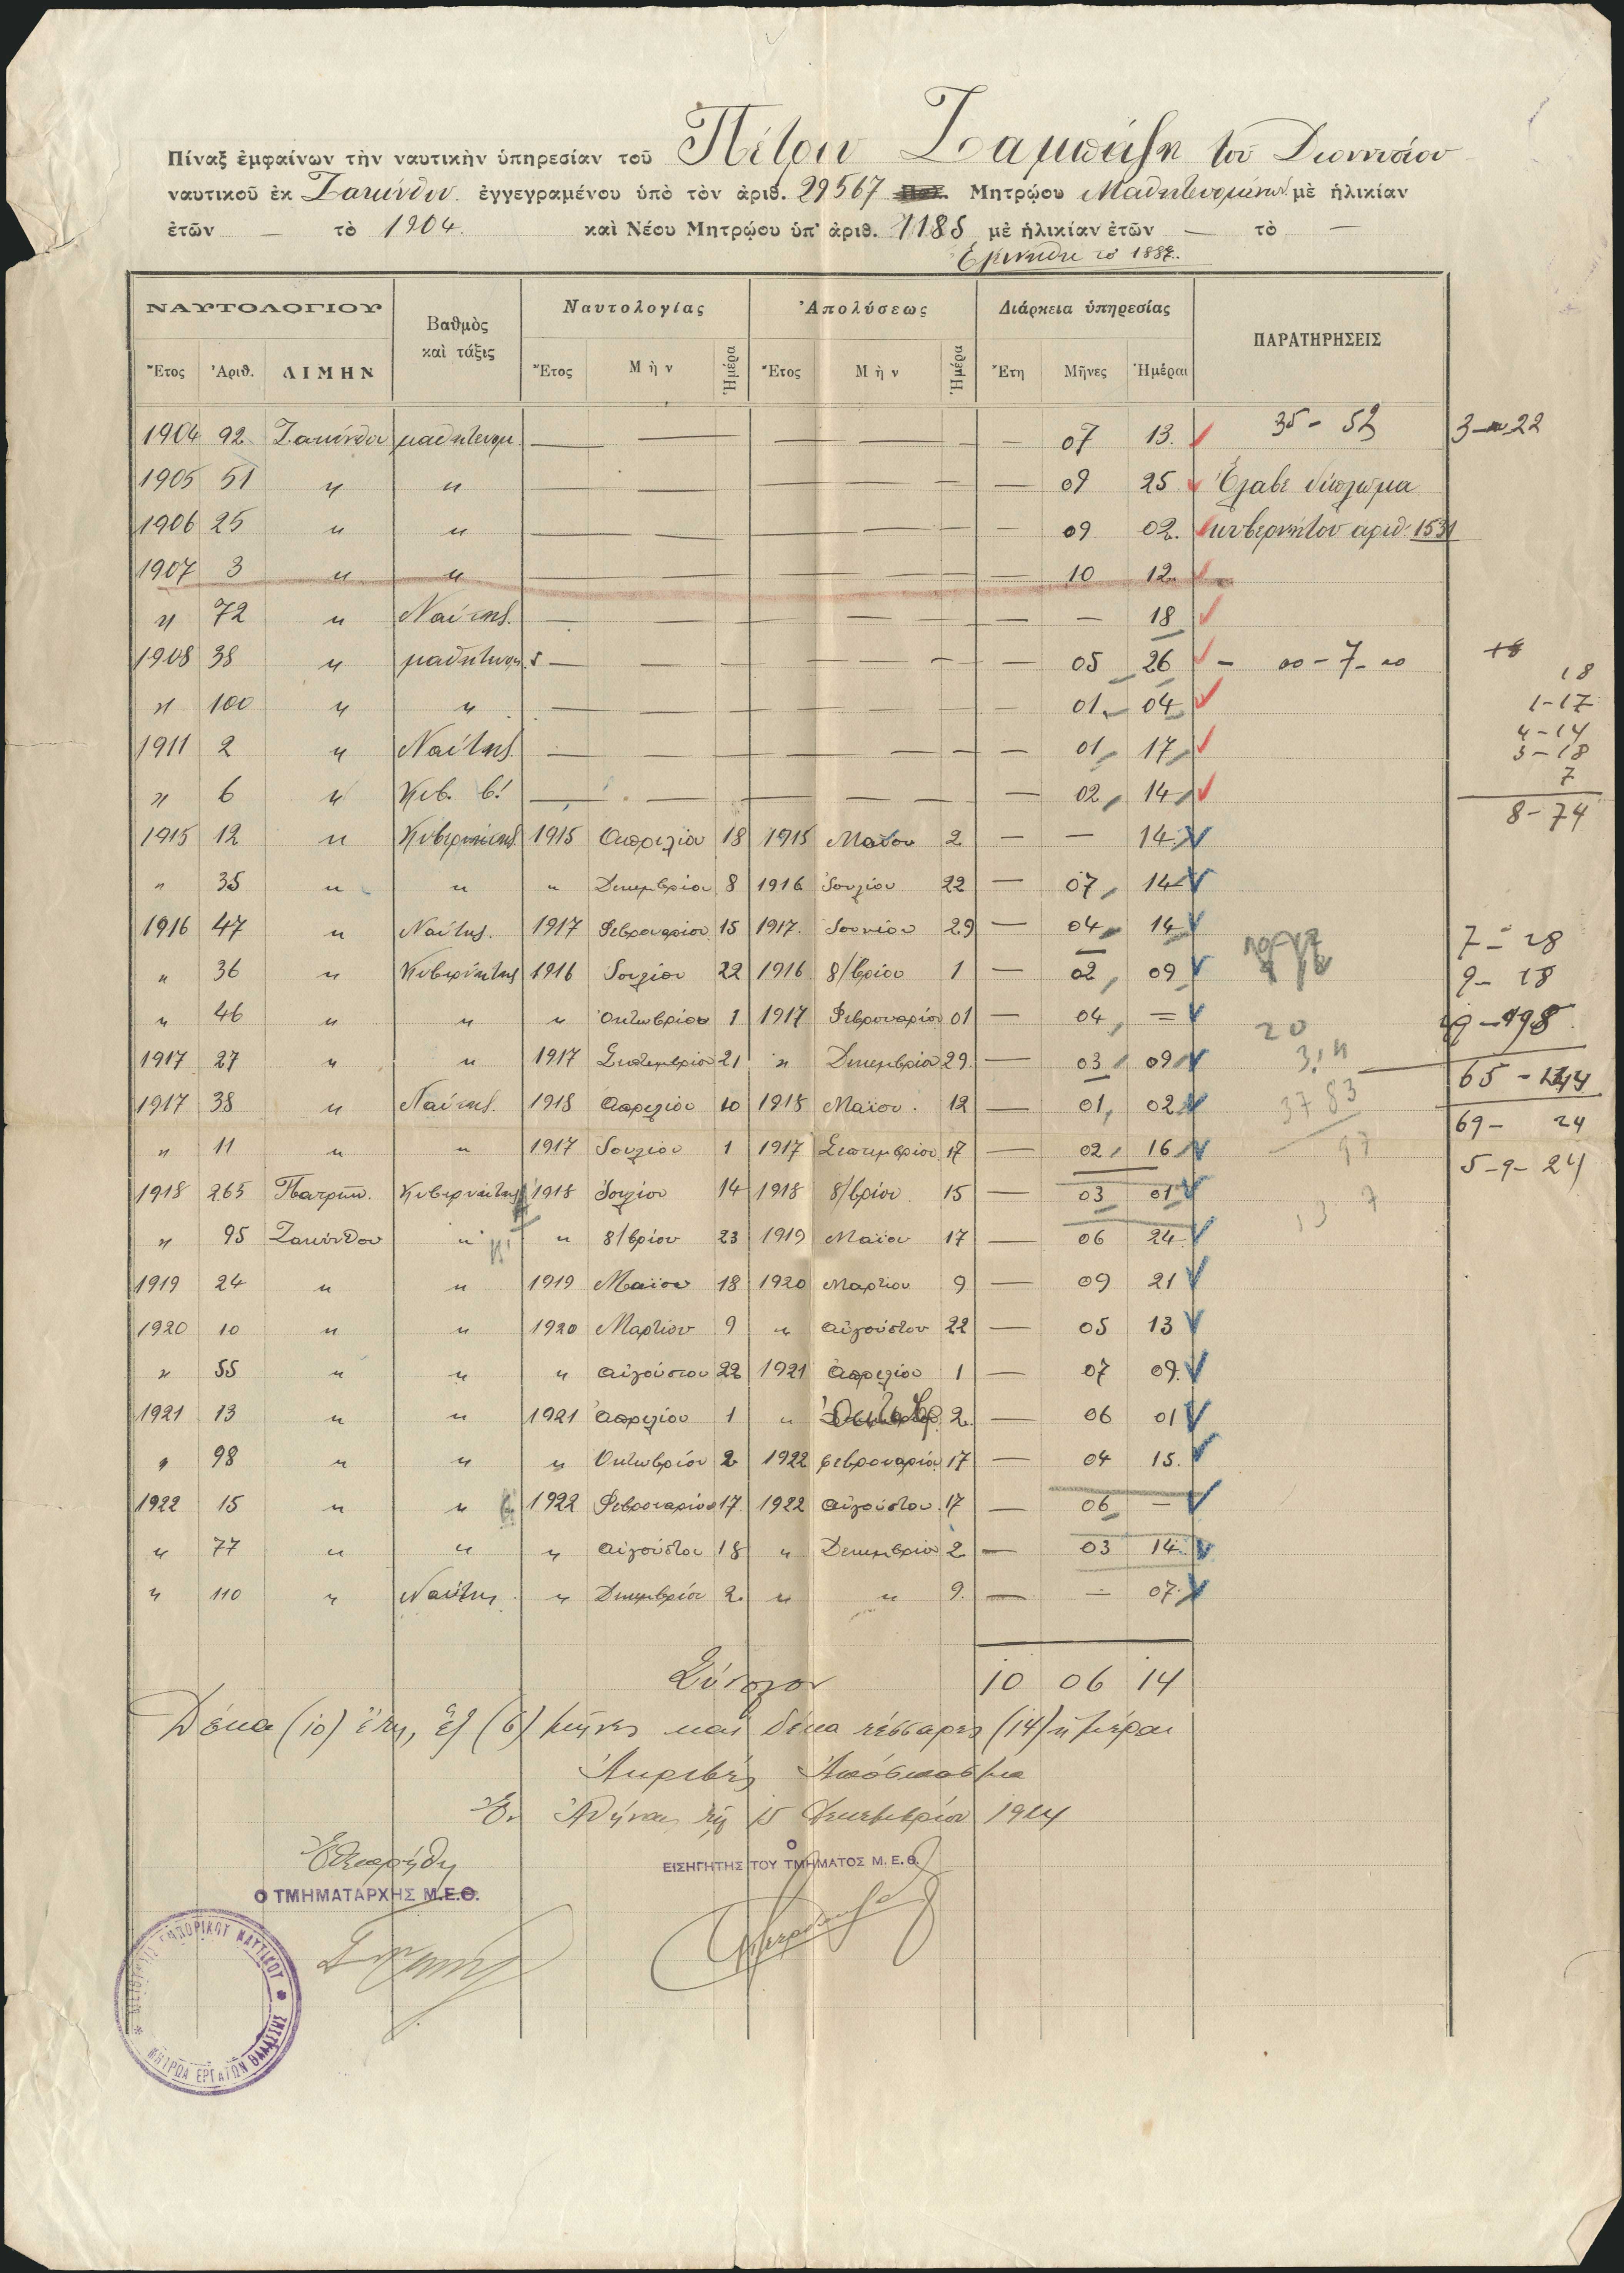 Πίναξ ἐμφαίνων τὴν ναυτικὴν ὑπηρεσίαν τοῦ Πέτρου Ζαμπέλη τοῦ Διονυσίου
ναυτικοῦ ἐκ Ζακύνθου ἐγγεγραμένου ὑπὸ τὸν ἀριθ. 29567 Μητρῴου Μαθητευομένων μὲ ἡλικίαν
ἐτῶν — τὸ 1904. καὶ Νέου Μητρῴου ὑπ' ἀριθ. 1185 μὲ ἡλικίαν ἐτῶν — τὸ —
Ἐγεννήθη τὸ 1887.
ΝΑΥΤΟΛΟΓΙΟΥ Βαθμὸς καὶ τάξις Ναυτολογίας Ἀπολύσεως Διάρκεια ὑπηρεσίας ΠΑΡΑΤΗΡΗΣΕΙΣ
Ἔτος Ἀριθ. ΛΙΜΗΝ Ἔτος Μὴν Ἡμέρα Ἔτος Μὴν Ἡμέρα Ἔτη Μῆνες Ἡμέραι
1904 92 Ζακύνθου μαθητευομ. — — — — — — — 07 13. 35 - 52 3 - 22
1905 51 " " — — — — — — — 09 25 Ἔλαβε δίπλωμα
1906 25 " " — — — — — — — 09 02. κυβερνήτου αριθ. 1531
1907 3 " " — — — — — — — 10 12.
" 72 " Ναύτης. — — — — — — — — 18
1908 38 " μαθητευομ. — — — — — — — 05 26 - 00 - 7 - 00
" 100 " " — — — — — — — 01 04
1911 2 " Ναύτης. — — — — — — — 01 17
" 6 " Κυβ. β! — — — — — — — 02 14
18
1-17
4-14
3-18
7
8-74
1915 12 " Κυβερνήτης 1915 Απριλίου 18 1915 Μαΐου 2 — — 14
" 35 " " " Δεκεμβρίου 8 1916 Ἰουλίου 22 — 07 14
1916 47 " Ναύτης. 1917 Φεβρουαρίου 15 1917. Ἰουνίου 29 — 04 14
" 36 " Κυβερνήτης 1916 Ἰουλίου 22 1916 8/βρίου 1 — 02 09
" 46 " " " Ὀκτωβρίου 1 1917 Φεβρουαρίου 01 — 04 =
1917 27 " " 1917 Σεπτεμβρίου 21 " Δεκεμβρίου 29. — 03 09
1917 38 " Ναύτης. 1918 Απριλίου 10 1918 Μαΐου. 12 — 01 02
" 11 " " 1917 Ἰουλίου 1 1917 Σεπτεμβρίου 17 — 02 16
7 - 28
9 - 18
65 - 144
69 - 24
5-9-24
1918 265 Πατρῶν. Κυβερνήτης 1918 Ἰουλίου 14 1918 8/βρίου. 15 — 03 01
" 95 Ζακύνθου " " 8/βρίου 23 1919 Μαΐου 17 — 06 24
1919 24 " " 1919 Μαΐου 18 1920 Μαρτίου 9 — 09 21
1920 10 " " 1920 Μαρτίου 9 " Αὐγούστου 22 — 05 13
" 55 " " " Αὐγούστου 22 1921 Απριλίου 1 — 07 09.
1921 13 " " 1921 Απριλίου 1 " Ὀκτωβρ. 2. — 06 01
" 98 " " " Ὀκτωβρίου 2 1922 Φεβρουαρίου 17 — 04 15.
1922 15 " " 1922 Φεβρουαρίου 17. 1922 Αὐγούστου. 17 — 06 —
" 77 " " " Αὐγούστου 18 " Δεκεμβρίου 2 — 03 14
" 110 " Ναύτης " Δεκεμβρίου 2. " " 9. — — 07
Σύνολον 10 06 14
Δέκα (10) ἔτη, ἕξ (6) μῆνες καὶ δέκα τέσσαρες (14) ἡμέραι
Ἀκριβὲς Ἀπόσπασμα
Ἐν Ἀθήναις τῇ 15 Δεκεμβρίου 1924
Ἐθεωρήθη
Ο ΤΜΗΜΑΤΑΡΧΗΣ Μ.Ε.Θ.
Ο
ΕΙΣΗΓΗΤΗΣ ΤΟΥ ΤΜΗΜΑΤΟΣ Μ.Ε.Θ.
ΕΜΠΟΡΙΚΟΥ ΝΑΥΤΙΚΟΥ
ΜΗΤΡΩΑ ΕΡΓΑΤΩΝ ΘΑΛΑΣΣΗΣ